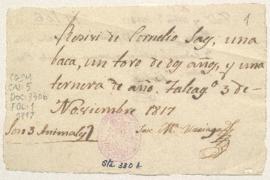 1
Resivi de Cornelio Say, una
baca, un toro de dos años, y una
ternera de año. Talcag.º 3 de
Noviembre 1817
Son 3 Animales
Jose M.ª
CAJA
DOC: 3406
FOL: 1
1817